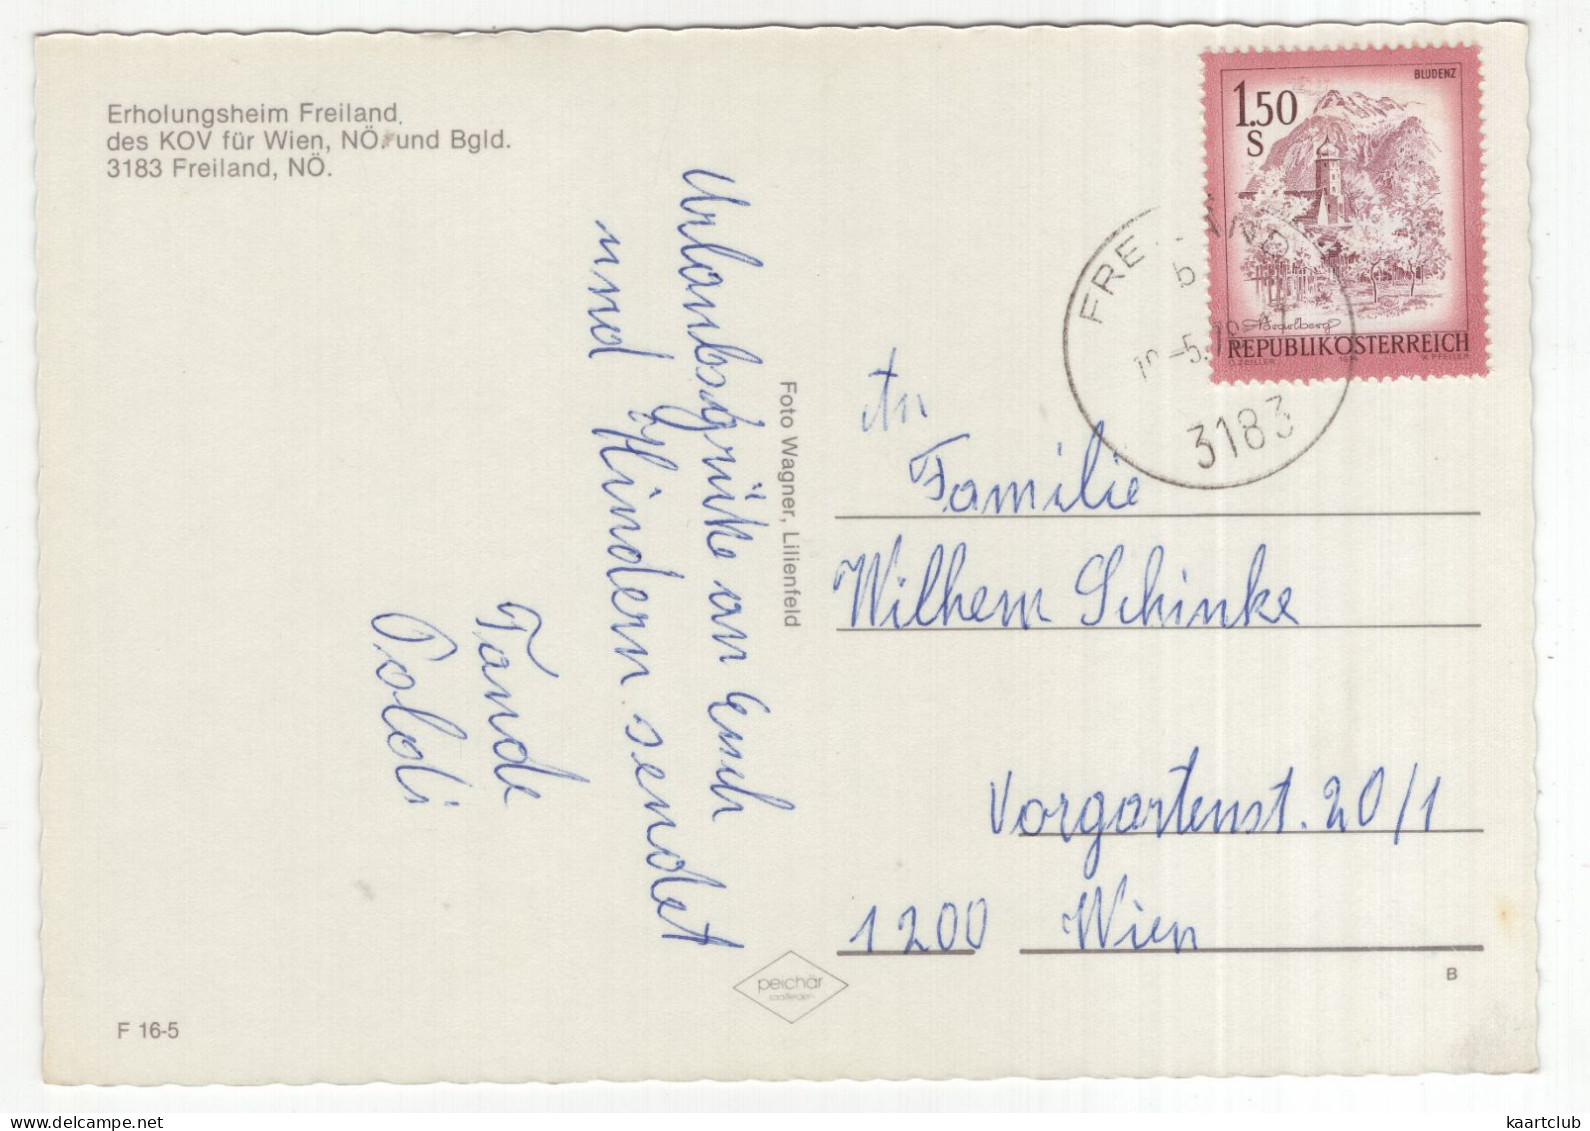 Erholungsheim Freiland,
des KOV für Wien, NÖ. und Bgld.
3183 Freiland, NÖ.
Urlaubsgrüße an Euch
und Kindern sendet
Tande
Poldi
Foto Wagner, Lilienfeld
BLUDENZ
1.50
S
Vorarlberg
REPUBLIK ÖSTERREICH
3183
An
Familie
Wilhem Schinke
Vorgartenst. 20/1
1200 Wien
peichär
B
F 16-5
kaartclub